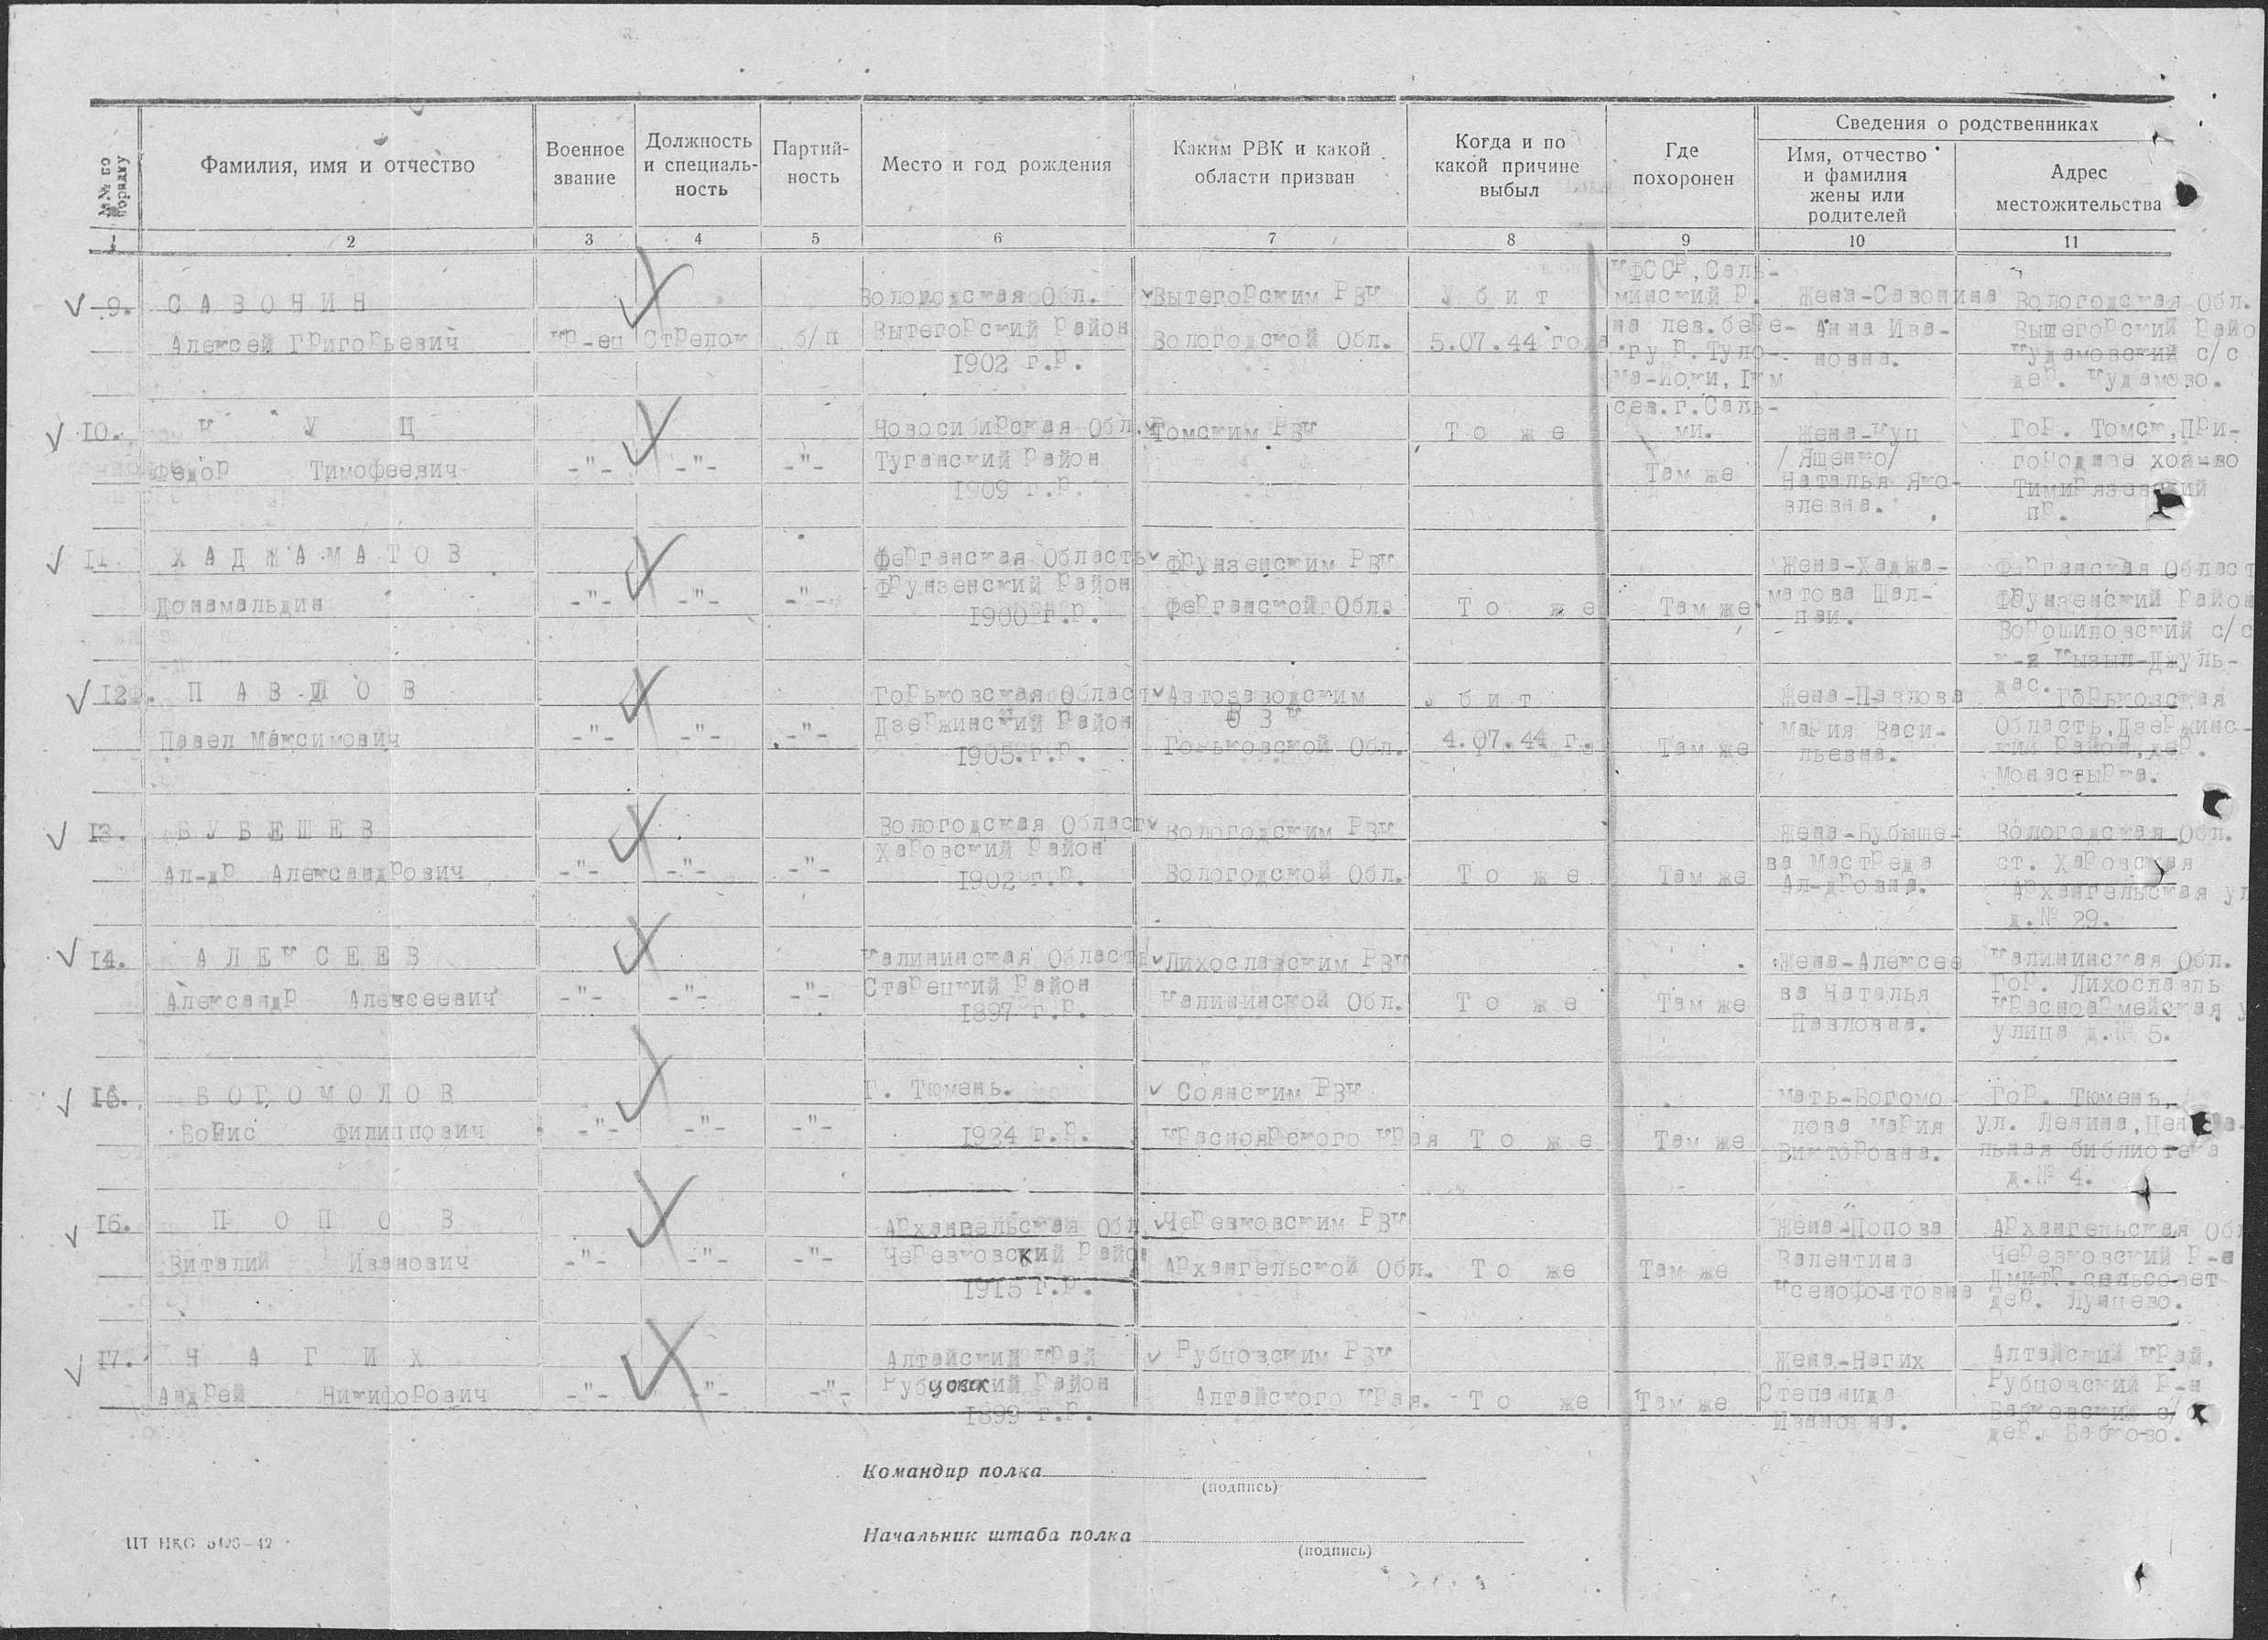 №№ по порядку
Фамилия, имя и отчество
Военное звание
Должность и специаль-ность
Партий-ность
Место и год рождения
Каким РВК и какой области призван
Когда и по какой причине выбыл
Где похоронен
Сведения о родственниках
Имя, отчество и фамилия жены или родителей
Адрес местожительства
1 2 3 4 5 6 7 8 9 10 11
9.
САВОНИН
Алексей Григорьевич
кр-ец
Стрелок
б/п
Вологодская Обл.
Вытегорский Район
1902 г.р.
Вытегорским РВК
Вологодской Обл.
Убит
5.07.44 года
КФССР, Саль-
минский р.
на лев.бере-
гу р. Туло-
ма-Йоки, 1км
сев.г.Саль-
ми.
Жена-Савонина
Анна Ива-
новна.
Вологодская Обл.
Вытегорский Райо
Кудамовский с/с
дер. Кудамово.
10.
КУЦ
Федор Тимофеевич
-"- -"- -"-
Новосибирская Обл.
Туганский Район
1909 г.р.
Томским РВК
То же
Там же
Жена-Куц
/Ященко/
Наталья Яко-
влевна.
Гор. Томск, При-
городное хоз-во
Тимирязевский
пр.
11
ХАДЖАМАТОВ
Донамальдин
-"- -"- -"-
Ферганская Область
Фрунзенский Район
1900 г.р.
Фрунзенским РВК
Ферганской Обл.
То же
Там же
Жена-Хаджа-
матова Шал-
паи.
Ферганская Област
Фрунзенский Район
Ворошиловский с/с
к-з Кызыл-Джуль-
дас.
12.
ПАВЛОВ
Павел Максимович
-"- -"- -"-
Горьковская Област
Дзержинский Район
1905.г.р.
Автозаводским
РВК
Горьковской Обл.
Убит
4.07.44 г.
Там же
Жена-Павлова
Мария Васи-
льевна.
Горьковская
Область,Дзержинс-
кий Район,дер.
Монастырка.
13.
БУБЕШЕВ
Ал-др Александрович
-"- -"- -"-
Вологодская Област
Харовский Район
1902 г.р.
Вологодским РВК
Вологодской Обл.
То же
Там же
Жена-Бубыше-
ва Мастреда
Ал-дровна.
Вологодская Обл.
ст. Харовская
Архангельская ул
д.№ 29.
14.
АЛЕКСЕЕВ
Александр Алексеевич
-"- -"- -"-
Калининская Область
Старецкий Район
1897 г.р.
Лихославским РВК
Калининской Обл.
То же
Там же
Жена-Алексее
ва Наталья
Павловна.
Калининская Обл.
Гор. Лихославль
Красноармейская у
улица д.№ 5.
15.
БОГОМОЛОВ
Борис Филиппович
-"- -"- -"-
Г. Тюмень.
1924 г.р.
Соянским РВК
Красноярского Края
То же
Там же
Мать-Богомо
лова Мария
Викторовна.
Гор. Тюмень,
ул. Ленина,Центра.
льная библиотека
д.№ 4.
16.
ПОПОВ
Виталий Иванович
-"- -"- -"-
Архангельская Обл
Черевковский Район
1915 г.р.
Черевковским РВК
Архангельской Обл.
То же
Там же
Жена-Попова
Валентина
Ксенофонтовна
Архангельская Обл
Черевковский Р-н
Дмитр.сельсовет
дер. Лунцево.
17.
НАГИХ
Андрей Никифорович
-"- -"- -"-
Алтайский Край
Рубцовский Район
1899 г.р.
Рубцовским РВК
Алтайского Края.
То же
Там же
Жена-Нагих
Степанида
Ивановна.
Алтайский Край,
Рубцовский Р-н
Бабковский с/с
дер. Бабково.
Командир полка
(подпись)
Начальник штаба полка
(подпись)